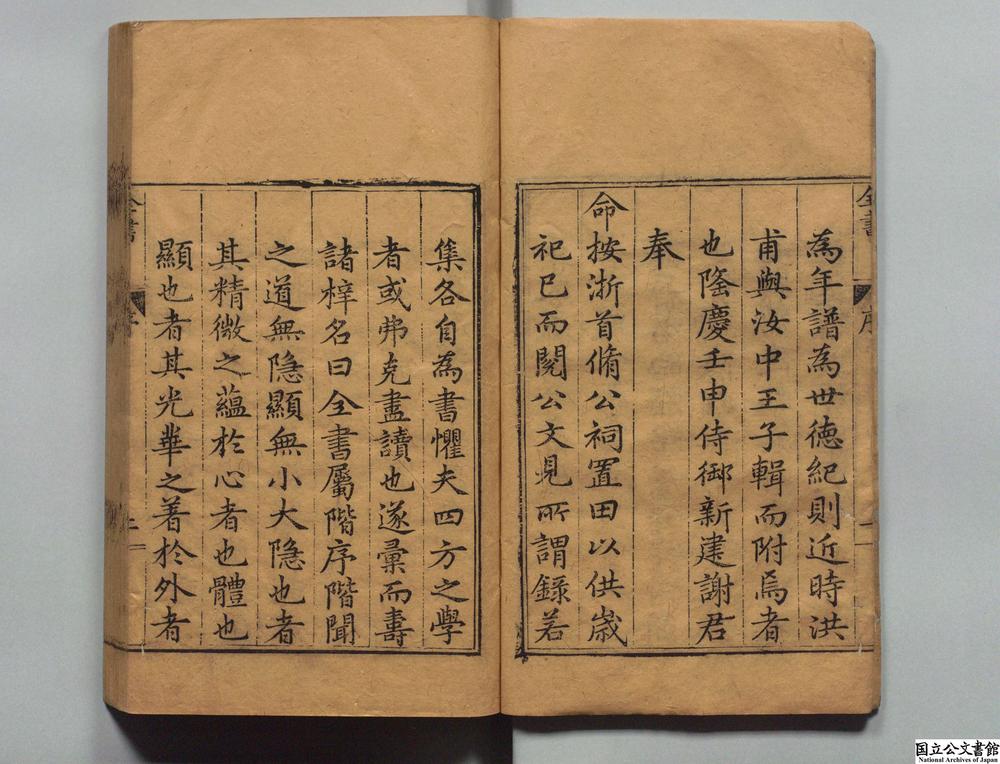 全書
序
二
為年譜為世徳紀則近時洪
甫與汝中王子輯而附焉者
也隆慶壬申侍御新建謝君
奉
命按浙首脩公祠置田以供歲
祀已而閱公文見所謂錄若
集各自為書懼夫四方之學
者或弗克盡讀也遂彙而壽
諸梓名曰全書屬階序階聞
之道無隱顯無小大隱也者
其精微之蘊於心者也體也
顯也者其光華之著於外者
全書
序
二
国立公文書館
National Archives of Japan